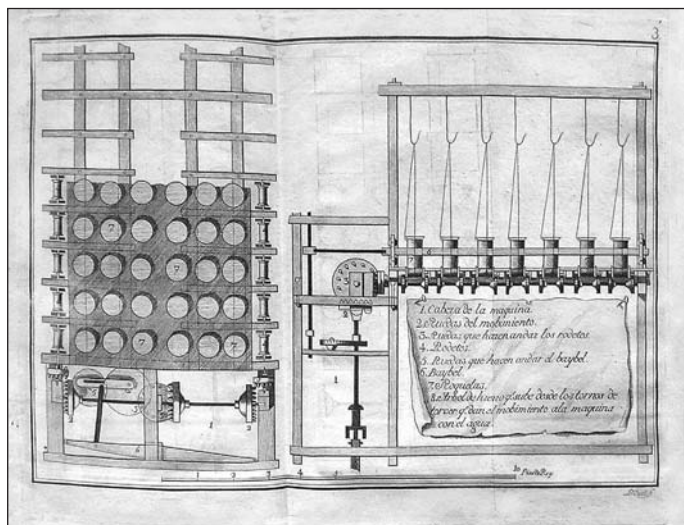 3
1. Cabeza de la maquina.
2. Ruedas del mobimiento.
3. Ruedas que hacen andar los rodetes.
4. Rodetes.
5. Ruedas que hacen andar el baybel.
6. Baybel.
7. Roquelas.
8. Arbol de hierro q.e sube desde los tornos de
torcer q.e dan el mobimiento a la maquina
con el agua.